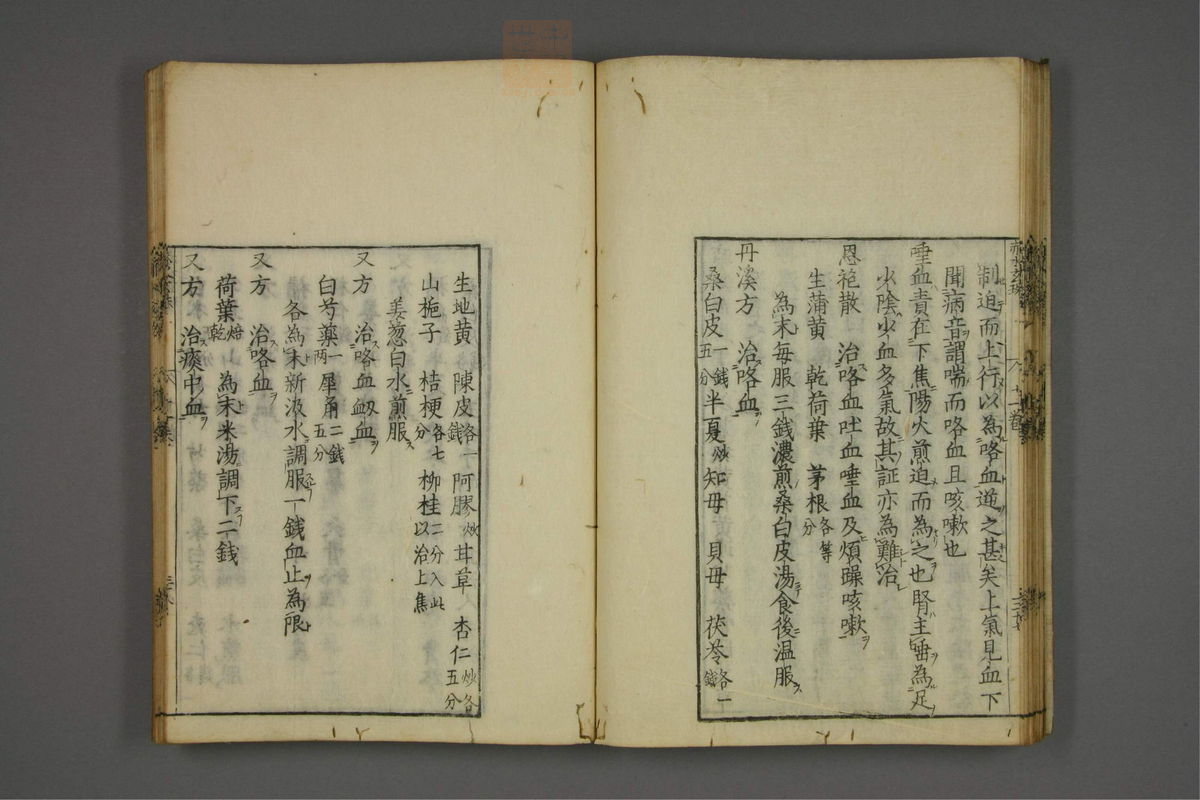 制迫而上行以為咯血逆之甚矣上氣見血下
聞病音謂喘而咯血且咳嗽也
唾血責在下焦陽火煎迫而為之也腎主唾為足
少陰少血多氣故其証亦為難治
恩袍散　治咯血吐血唾血及煩躁咳嗽
生蒲黄　乾荷葉　茅根各等分
為末每服三錢濃煎桑白皮湯食後温服
丹溪方　治咯血
桑白皮一錢五分　半夏炒　知母　貝母　茯苓各一錢
生地黄　陳皮各一錢　阿膠炒　甘草　杏仁炒各五分
山梔子　桔梗各七分　柳桂二分入此以治上焦
姜葱白水煎服
又方　治咯血衂血
白芍藥一兩　犀角二錢五分
各為末新汲水調服一錢血止為限
又方　治咯血
荷葉焙乾　為末米湯調下二錢
又方　治痰中血